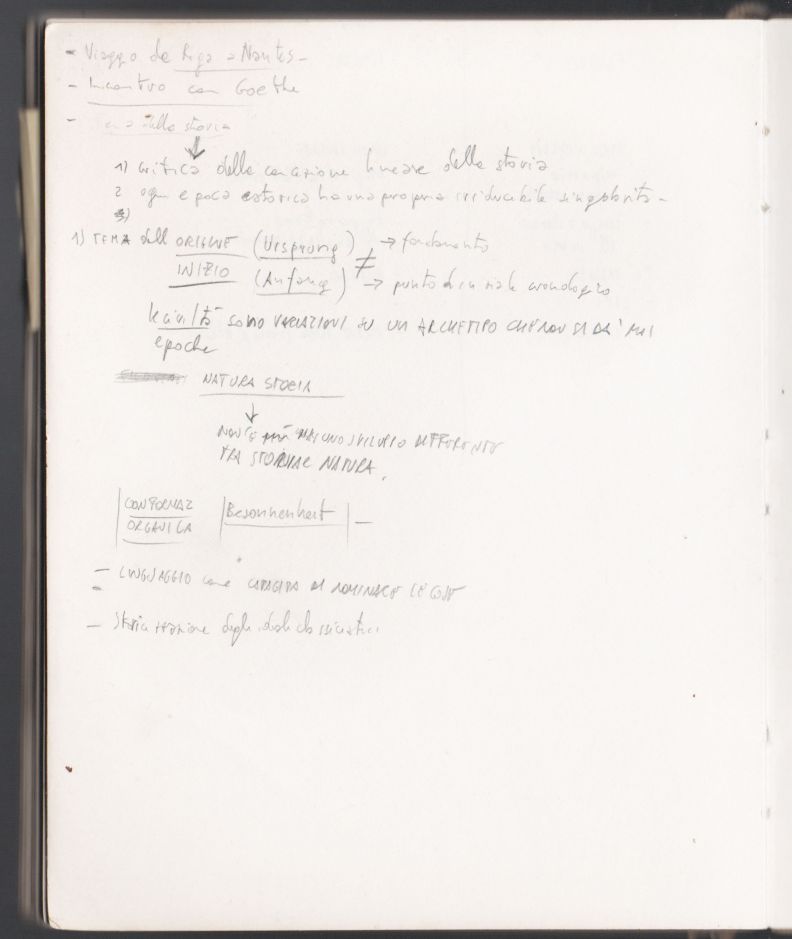 - Viaggo da Riga a Nantes -
- Incontro con Goethe
- della storia
1) critica della concezione lineare della storia
2 ogni epoca storica ha una propria irriducibile singolarità -
3)
1) TEMA dell ORIGINE (Ursprung) → fondamento
INIZIO (Anfang) ≠ → punto di iniziale cronologico
le civiltà SONO VARIAZIONI SU UN ARCHETIPO CHE NON SI DA' MAI
epoche
NATURA STORIA
NON C'è più MAI UNO SVILUPPO DIFFERENTE
TRA STORIA E NATURA.
CONFORMAZ | Besonnenheit | -
ORGANICA
- LINGUAGGIO come CAPACITÀ DI NOMINARE LE COSE
- Storicizzazione degli ideali classicistici